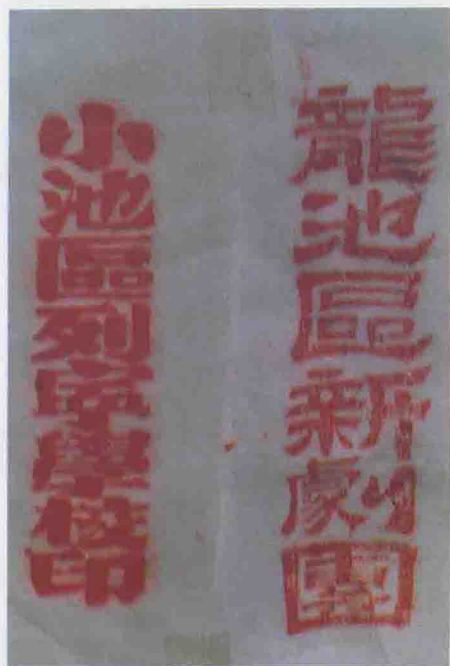 龍池區新劇團
小池區列寧學校印